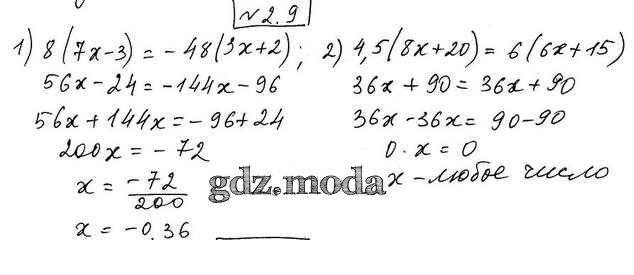 № 2.9
1) 8(7x-3) = -48(3x+2);
56x-24=-144x-96
56x+144x=-96+24
200x = -72
x = -72/200
x = -0.36
2) 4,5(8x+20)= 6(6x+15)
36x+90=36x+90
36x-36x= 90-90
0·x=0
x - любое число
gdz.moda